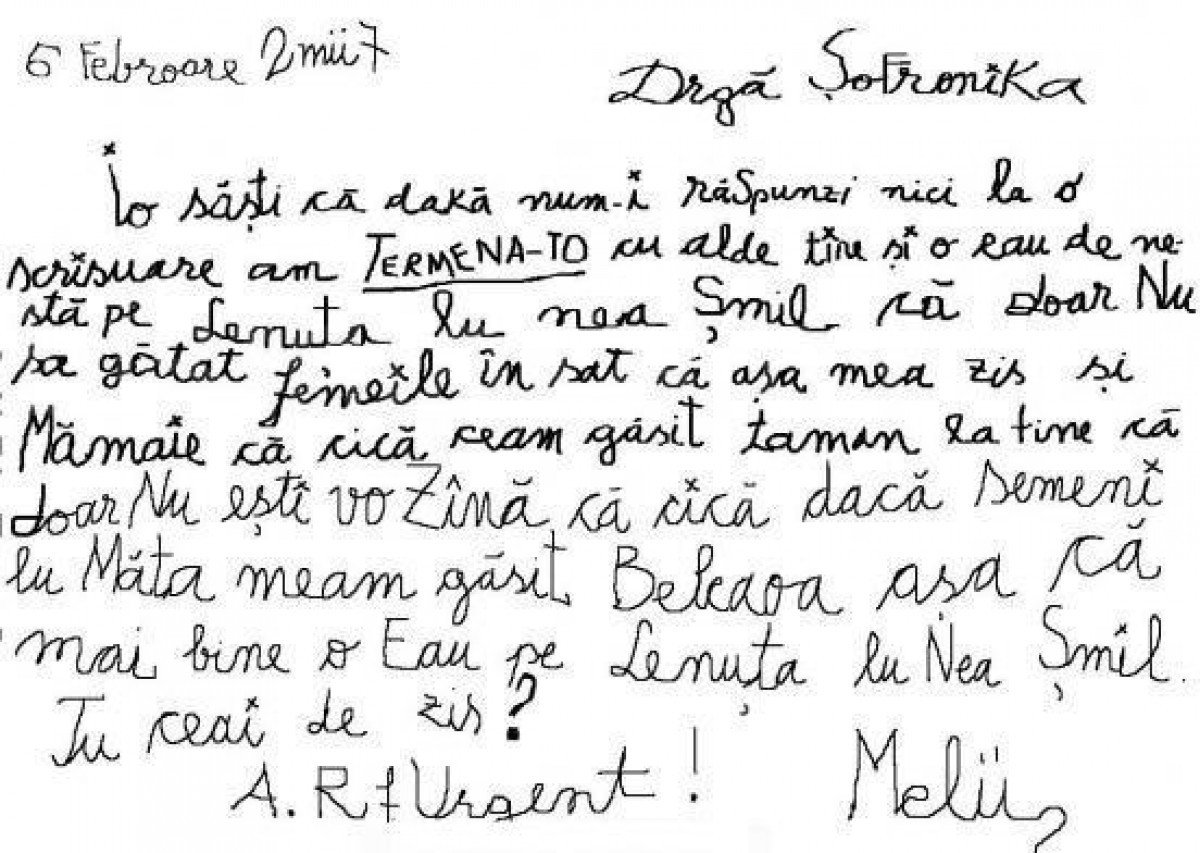 5 Febroare 2mii7
Drgă Șofronika
Io săști că dakă num-i răspunzi nici la o
scrisuare am TERMENA-TO cu alde tine și o eau de ne-
stă pe Lenuța lu nea Șmil că doar Nu
sa gătat femeile în sat că așa mea zis și
Mămaie că cică ceam găsit taman la tine că
doar Nu ești vo Zînă că cică dacă semeni
lu Măta meam găsit Beleaoa așa că
mai bine o Eau pe Lenuța lu Nea Șmil.
Tu ceai de zis?
A. R f Urgent! Melii